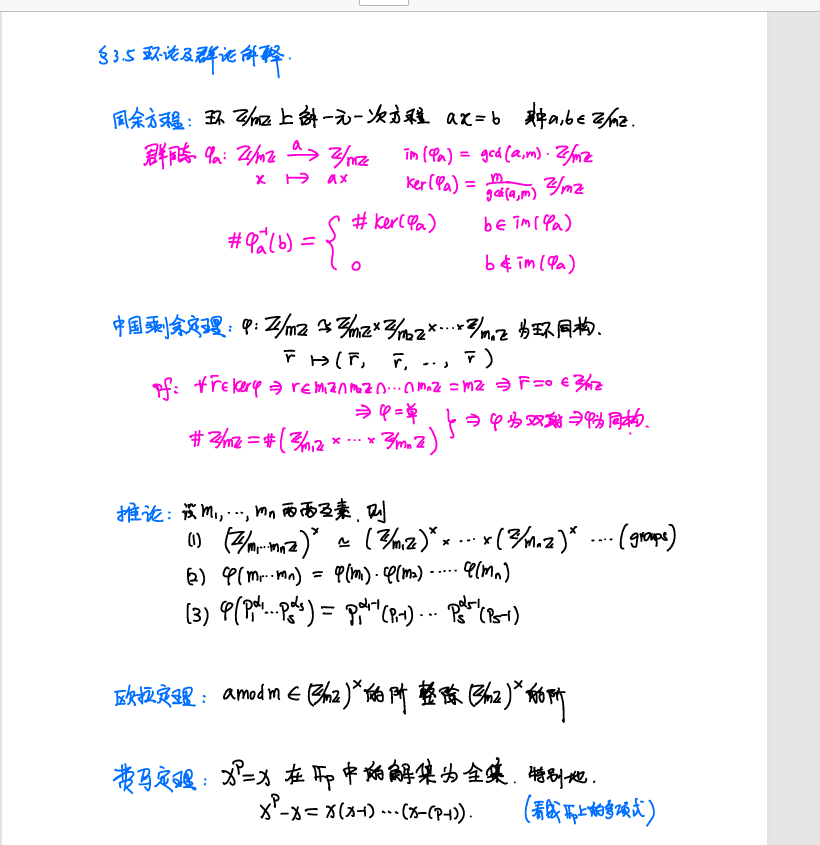 §3.5 环论及群论解释.
同余方程: 环 ℤ/mℤ 上解一元一次方程 ax=b 其中a,b∈ℤ/mℤ.
群同态 φₐ: ℤ/mℤ —a→ ℤ/mℤ im(φₐ) = gcd(a,m)·ℤ/mℤ
x ↦ ax ker(φₐ) = m/gcd(a,m) ℤ/mℤ
#φₐ⁻¹(b) = { #ker(φₐ) b∈im(φₐ)
0 b∉im(φₐ)
中国剩余定理: φ: ℤ/mℤ ≃ ℤ/m₁ℤ×ℤ/m₂ℤ×⋯×ℤ/mₙℤ 为环同构.
r̄ ↦ (r̄, r̄, ⋯, r̄)
pf: ∀r̄∈kerφ ⇒ r∈m₁ℤ∩m₂ℤ∩⋯∩mₙℤ = mℤ ⇒ r̄=0 ∈ℤ/mℤ
⇒ φ=单
#ℤ/mℤ = #(ℤ/m₁ℤ × ⋯ × ℤ/mₙℤ) } ⇒ φ为双射⇒φ为同构.
推论: 设m₁,⋯,mₙ两两互素, 则
(1) (ℤ/m₁⋯mₙℤ)ˣ ≃ (ℤ/m₁ℤ)ˣ × ⋯ × (ℤ/mₙℤ)ˣ ⋯⋅(groups)
(2) φ(m₁⋯mₙ) = φ(m₁)·φ(m₂)⋯⋅⋅φ(mₙ)
(3) φ(p₁^α₁⋯pₛ^αₛ) = p₁^(α₁-1)(p₁-1)⋯ pₛ^(αₛ-1)(pₛ-1)
欧拉定理: a mod m ∈ (ℤ/mℤ)ˣ 的阶 整除 (ℤ/mℤ)ˣ 的阶
费马定理: xᵖ=x 在 𝔽ₚ 中的解集为全集. 特别地.
xᵖ-x = x(x-1)⋯(x-(p-1)). (看成𝔽ₚ上的多项式)